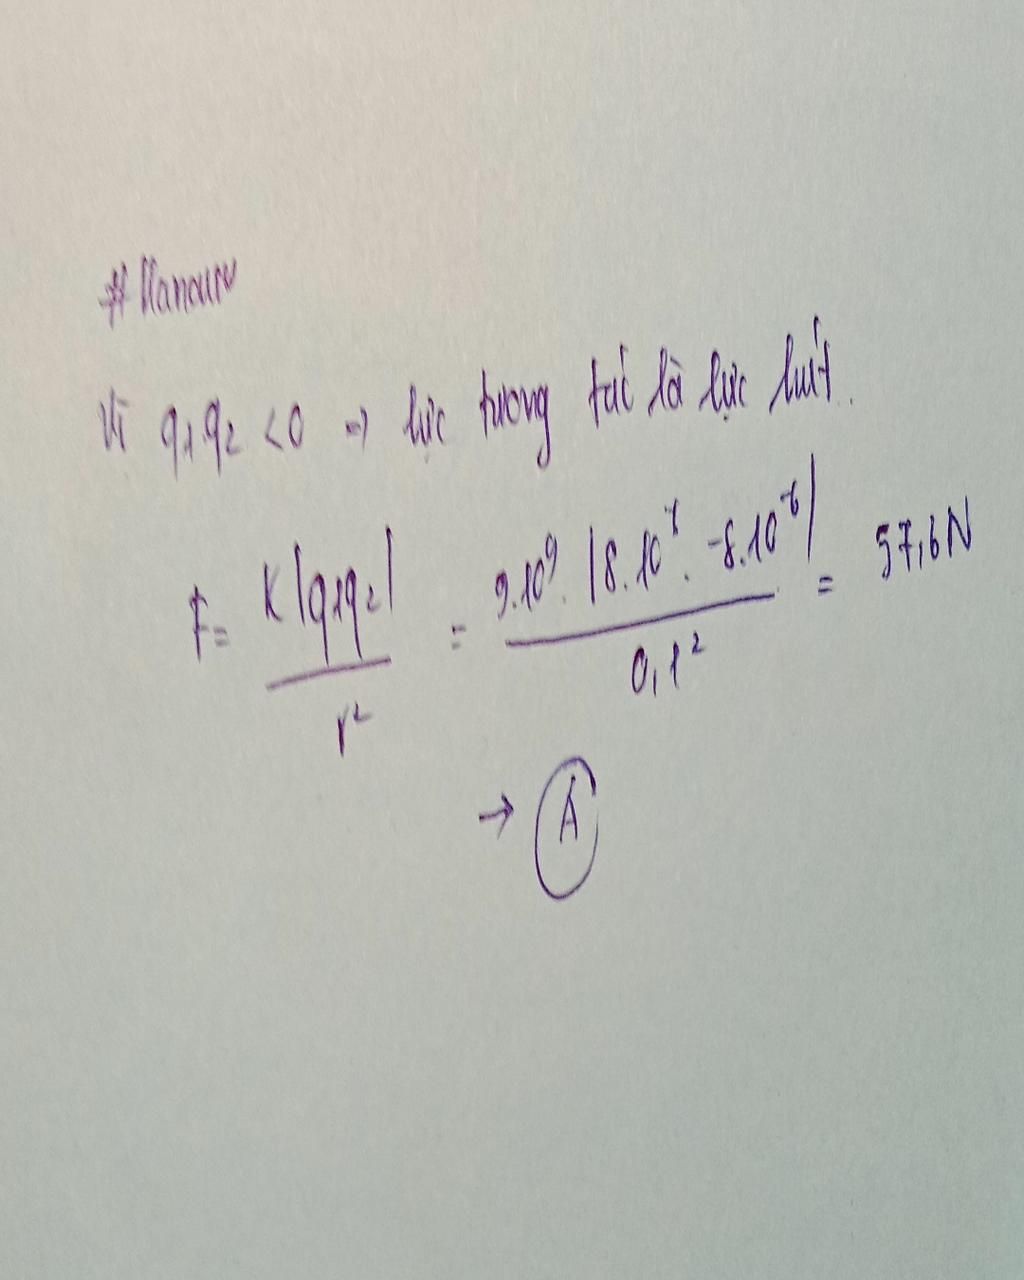 Vì q₁q₂ <0 => lực tương tác là lực hút.
F = K|q₁q₂| / r² = 9.10⁹. |8.10 . -8.10⁻⁶| / 0,1² = 57,6N
→ A